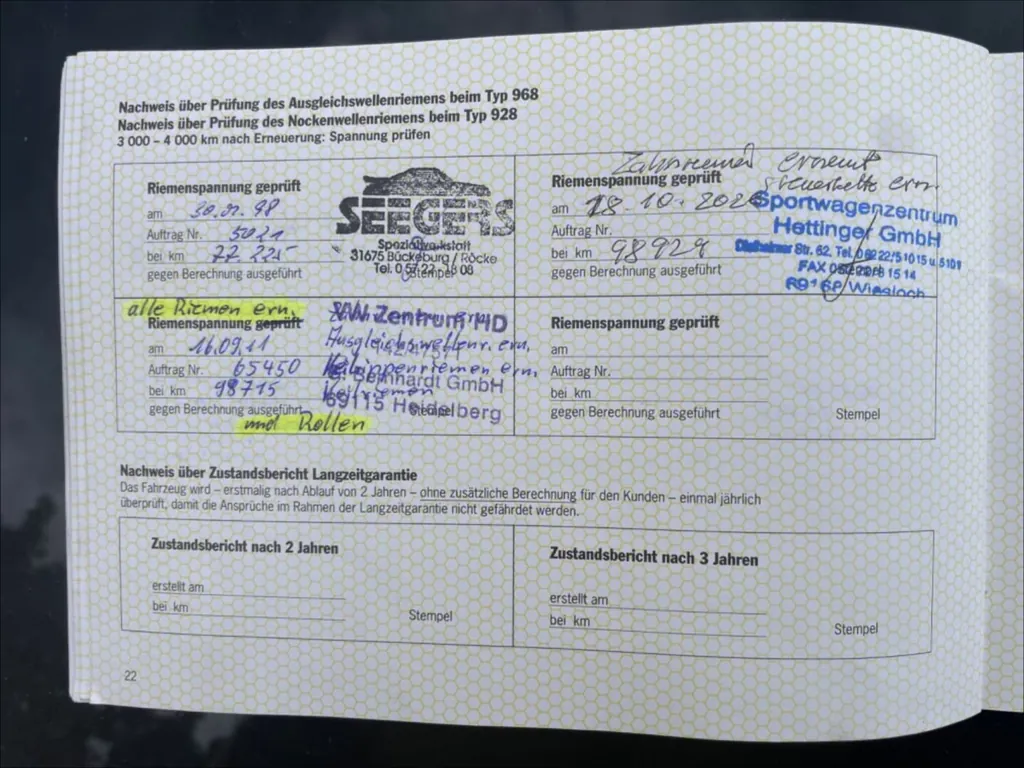 Nachweis über Prüfung des Ausgleichswellenriemens beim Typ 968
Nachweis über Prüfung des Nockenwellenriemens beim Typ 928
3 000 – 4 000 km nach Erneuerung: Spannung prüfen
Riemenspannung geprüft
am
Auftrag Nr. 5021
bei km 77.225
gegen Berechnung ausgeführt
SEEGERS
Spezialwerkstatt
31675 Bückeburg / Röcke
Tel. 0 57 22
Stempel
Zahnriemen erneut
Steuerkette ern.
Riemenspannung geprüft
am 28.10.2020
Auftrag Nr.
bei km 98929
gegen Berechnung ausgeführt
Sportwagenzentrum
Hettinger GmbH
Dielheimer Str. 62, Tel. 0 62 22/5 10 15 u. 5101
FAX
Wiesloch
alle Riemen ern.
Riemenspannung geprüft
am 16.09.11
Auftrag Nr. 65450
bei km 98715
gegen Berechnung ausgeführt
und Rollen
Zentrum HD
Ausgleichswellenr. ern.
Keilrippenriemen ern.
Bernhardt GmbH
Keilriemen
69115 Heidelberg
Stempel
Riemenspannung geprüft
am
Auftrag Nr.
bei km
gegen Berechnung ausgeführt
Stempel
Nachweis über Zustandsbericht Langzeitgarantie
Das Fahrzeug wird – erstmalig nach Ablauf von 2 Jahren – ohne zusätzliche Berechnung für den Kunden – einmal jährlich
überprüft, damit die Ansprüche im Rahmen der Langzeitgarantie nicht gefährdet werden.
Zustandsbericht nach 2 Jahren
erstellt am
bei km
Stempel
Zustandsbericht nach 3 Jahren
erstellt am
bei km
Stempel
22